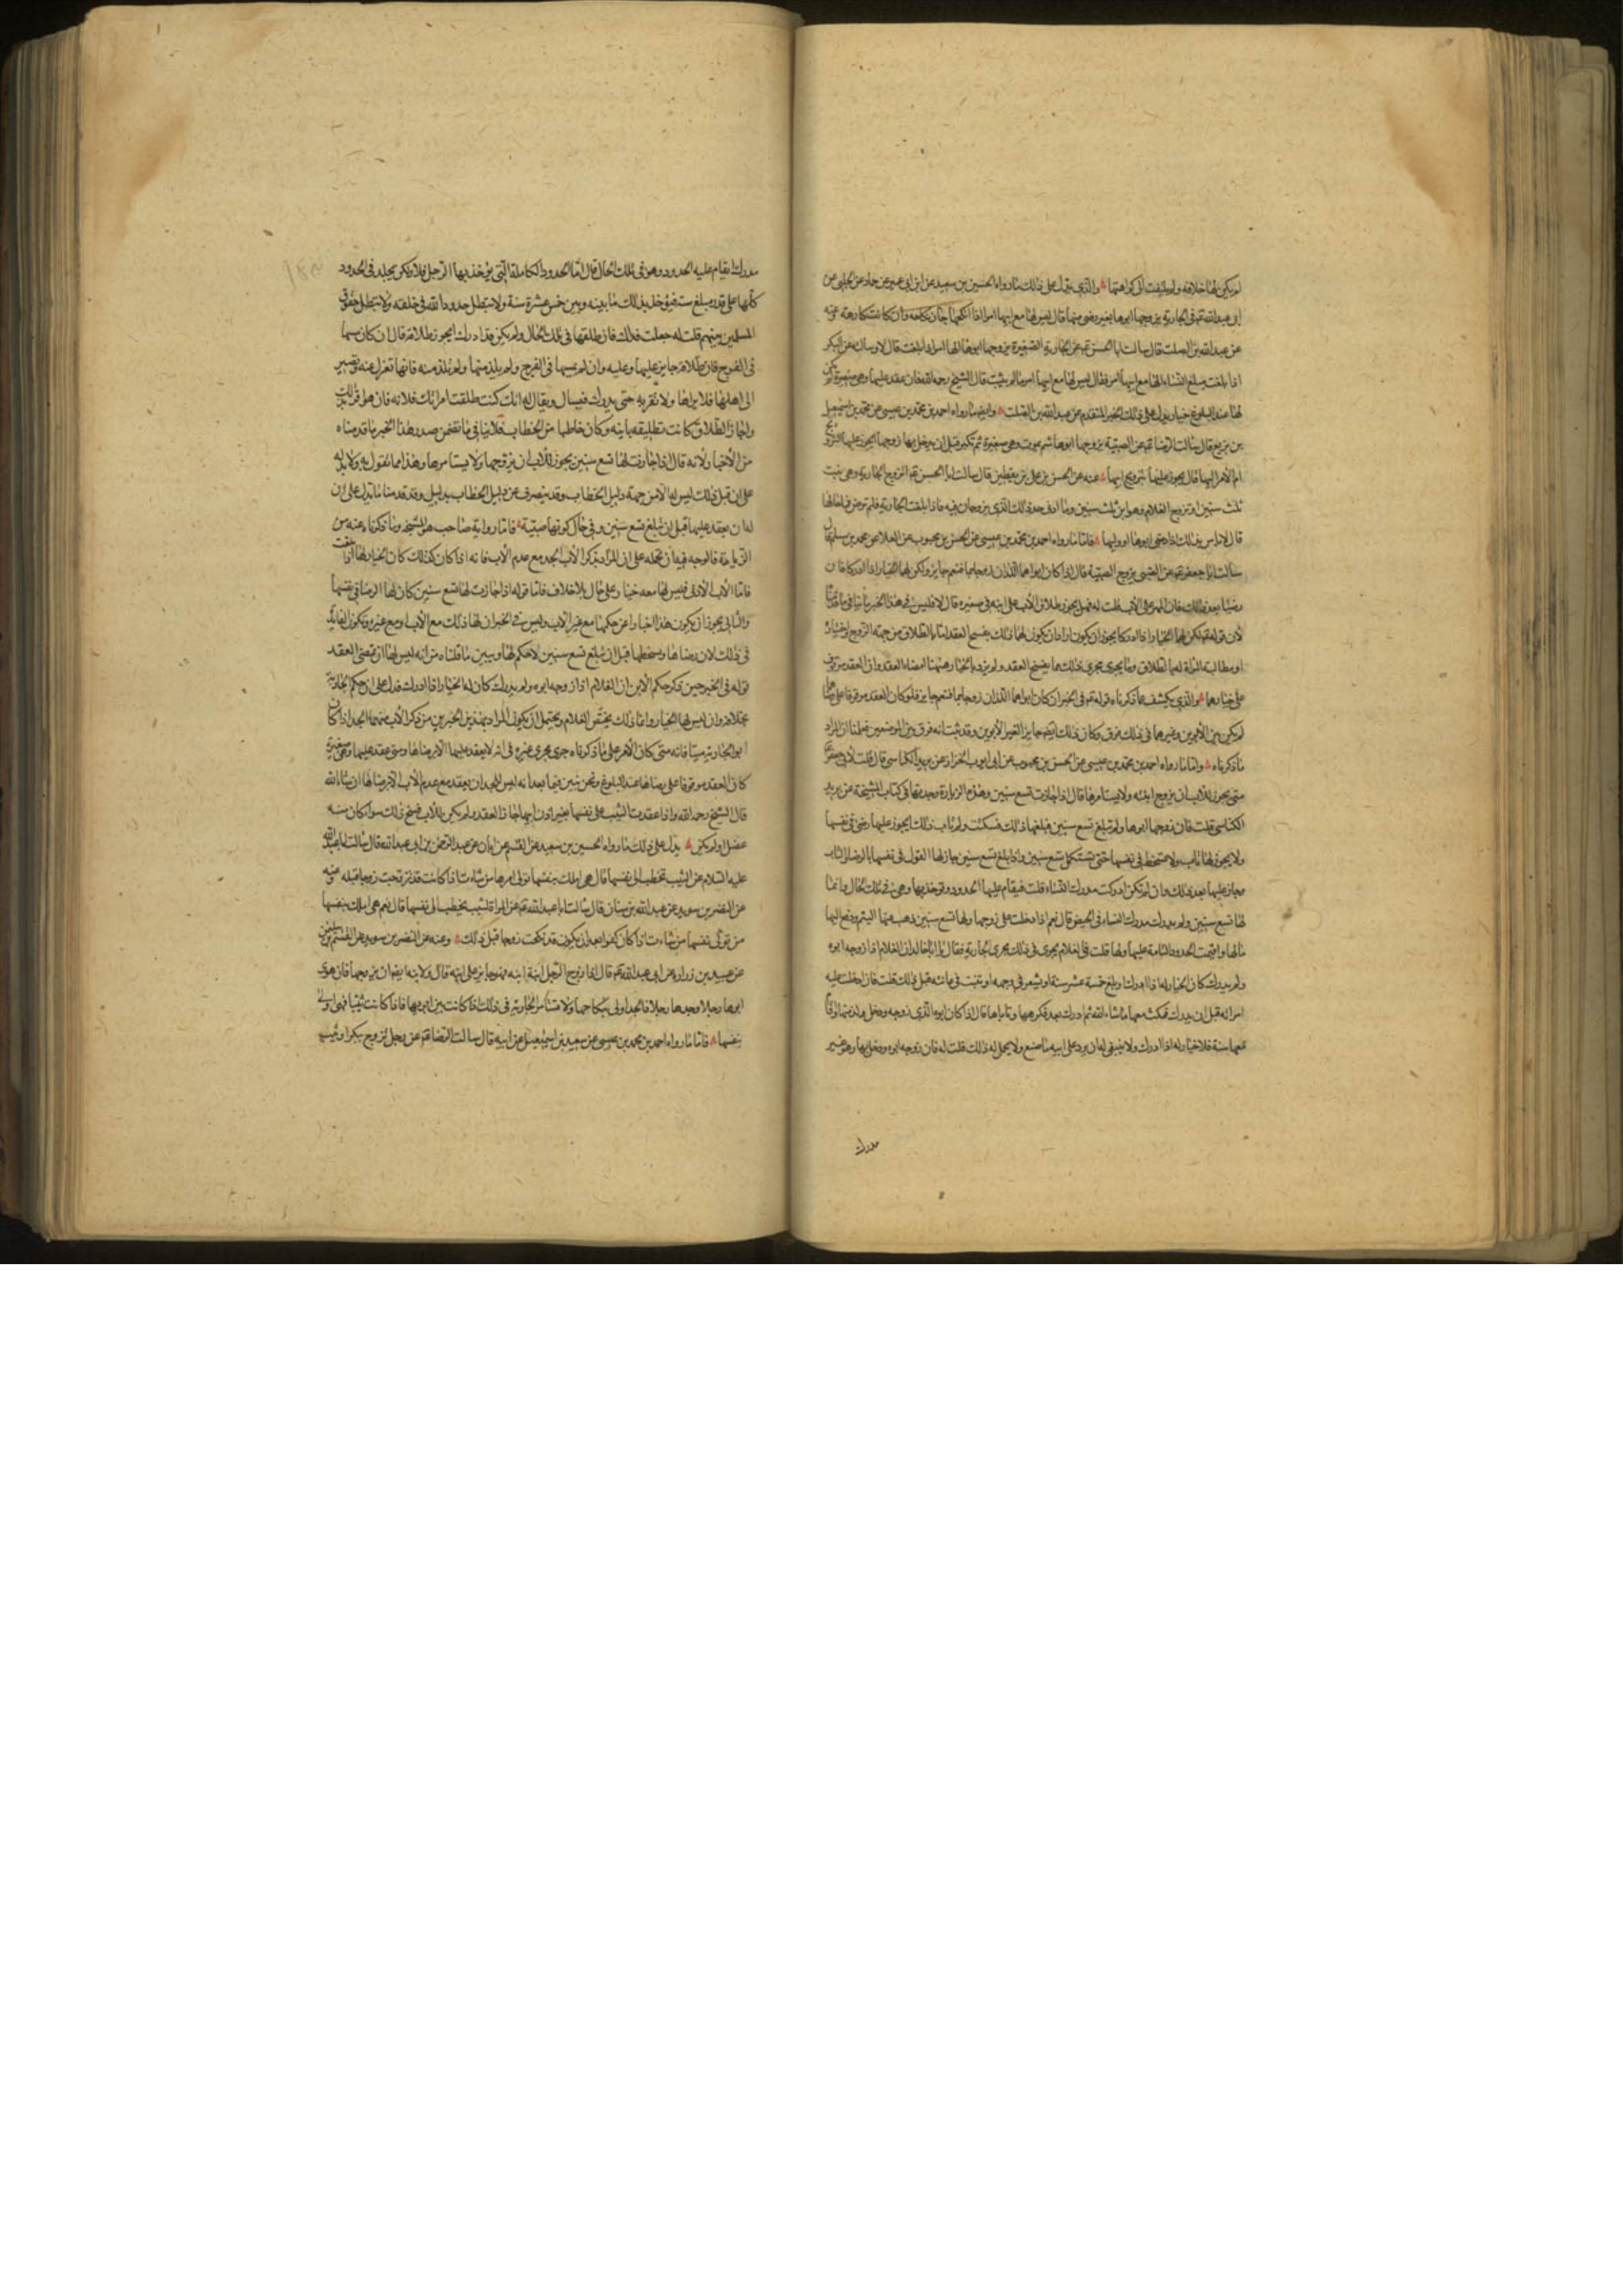 لم يكن لها خلافه ولم يلتفت الى كراهتها والذي يدل على ذلك ما رواه الحسين بن سعيد عن ابن ابي عمير عن حماد عن الحلبي عن
ابي عبد الله في الجارية يزوجها ابوها بغير رضى منها قال ليس لها مع ابيها امر اذا انكحها جاز نكاحه وان كانت كارهة عنه
عن عبد الله بن الصلت قال سالت ابا الحسن عن الجارية الصغيرة يزوجها ابوها الها امر اذا بلغت قال لا وسالته عن البكر
اذا بلغت مبلغ النساء الها مع ابيها امر فقال ليس لها مع ابيها امر ما لم يثيب قال الشيخ رحمه الله فان عقد عليها وهي صغيرة لم يكن
لها عند البلوغ خيار يدل على ذلك الخبر المتقدم عن عبد الله بن الصلت وايضا ما رواه احمد بن محمد بن عيسى عن محمد بن اسمعيل
بن بزيع قال سالت الرضا عن الصبية يزوجها ابوها ثم يموت وهي صغيرة ثم تكبر قبل ان يدخل بها زوجها ايجوز عليها التزويج
ام الامر اليها قال يجوز عليها تزويج ابيها عنه عن الحسن بن علي بن يقطين قال سالت ابا الحسن اتزوج الجارية وهي بنت
ثلث سنين او تزوج الغلام وهو ابن ثلث سنين وما ادنى حد ذلك الذي يزوجان فيه فاذا بلغت الجارية فلم ترض فما حالها
قال لا باس بذلك اذا رضي ابوها او وليها فاما ما رواه احمد بن محمد بن عيسى عن الحسن بن محبوب عن العلا عن محمد بن مسلم قال
سالت ابا جعفر عن الصبي يزوج الصبية قال اذا كان ابواهما اللذان زوجاهما فنعم جايز ولكن لهما الخيار اذا ادركا فان
رضيا بعد ذلك فان المهر على الاب قلت له فهل يجوز طلاق الاب على ابنه في صغره قال لا فليس في هذا الخبر ما ينافي ما قدمنا
لان قوله لكن لهما الخيار اذا ادركا يجوز ان يكون اراد ان يكون لهما ذلك بفسخ العقد اما بالطلاق من جهة الزوج واختياره
او مطالبة المراة له بالطلاق وما يجري مجرى ذلك مما يفسخ العقد ولم يرد بالخيار ههنا امضاء العقد وان العقد موقوف
على خيارهما والذي يكشف عما ذكرناه قوله في الخبر ان كان ابواهما اللذان زوجاهما فنعم جايز فلو كان العقد موقوفا على رضاهما
لم يكن بين الابوين وغيرهما في ذلك فرق وكان ذلك ايضا جايزا لغير الابوين وقد ثبت انه فرق بين الموضعين فعلمنا ان المراد
ما ذكرناه واما ما رواه احمد بن محمد بن عيسى عن الحسن بن محبوب عن ابي ايوب الخزاز عن بريد الكناسي قال قلت لابي جعفر
متى يجوز للاب ان يزوج ابنته ولا يستامرها قال اذا جازت تسع سنين وهذه الزيارة وجدتها في كتاب المشيخة عن بريد
الكناسي قلت فان زوجها ابوها ولم تبلغ تسع سنين فبلغها ذلك فسكتت ولم تاب ذلك ايجوز عليها رضى في نفسها
ولا يجوز لها تاب ولا سخط في نفسها حتى تستكمل تسع سنين واذا بلغ تسع سنين جاز لها القول في نفسها بالرضا والتابي
وجاز عليها بعد ذلك وان لم تكن ادركت مدرك النساء قلت فيقام عليها الحدود وتؤخذ بها وهي في تلك الحال وانما
لها تسع سنين ولم تدرك مدرك النساء في الحيض قال نعم اذا دخلت على زوجها ولها تسع سنين ذهب عنها اليتم ودفع اليها
مالها واقيمت الحدود التامة عليها ولها قلت فالغلام يجري في ذلك مجرى الجارية فقال يا ابا خالد ان الغلام اذا زوجه ابوه
ولم يدرك كان الخيار له اذا ادرك وبلغ خمسة عشر سنة او يشعر في وجهه او ينبت في عانته قبل ذلك قلت فان ادخلت عليه
امراته قبل ان يدرك فمكث معها ما شاء الله ثم ادرك بعد فكرهها وتاباها قال اذا كان ابوه الذي زوجه ودخل ولذ منها واقام
معها سنة فلا خيار له اذا ادرك ولا ينبغي له ان يرد على ابيه ما صنع ولا يحل له ذلك قلت له فان زوجه ابوه ودخل بها وهو غير
مدرك
مدرك ايقام عليه الحدود وهو في تلك الحال قال اما الحدود الكاملة التي يؤخذ بها الرجل فلا ولكن يجلد في الحدود
كلها على قدر مبلغ سنه فيؤخذ بذلك ما بينه وبين خمس عشرة سنة ولا تبطل حدود الله في خلقه ولا تبطل حقوق
المسلمين بينهم قلت له جعلت فداك فان طلقها في تلك الحال ولم يكن قد ادرك ايجوز طلاقه قال ان كان مسها
في الفرج فان طلاقه جايز عليها وعليه وان لم يمسها في الفرج ولم يلذ منها ولم تلذ منه فانها تعزل عنه وتصير
الى اهلها فلا يراها ولا تقربه حتى يدرك فيسال ويقال له انك كنت طلقت امراتك فلانة فان هو اقر بذلك
واجاز الطلاق كانت تطليقه باينة وكان خاطبا من الخطاب فلا ينافي ما تضمن صدر هذا الخبر ما قدمناه
من الاخبار لانه قال اذا جازت لها تسع سنين يجوز للاب ان يزوجها ولا يستامرها وهذا مما نقول به ولا يدل
على ان قبل ذلك ليس له الا من جهة دليل الخطاب وقد ينصرف عن دليل الخطاب بدليل وقد قدمنا ما يدل على ان
له ان يعقد عليها قبل ان تبلغ تسع سنين وفي حال كونها صبية فاما رواية صاحب هو المشيخة وما ذكرناه عنه من
الزيادة فالوجه فيه ان نحمله على ان المراد بذكر الاب الجد مع عدم الاب فانه اذا كان كذلك كان الخيار لها اذا بلغت
فاما الاب الادنى فليس لها معه خيار على حال بلا خلاف فاما قوله اذا جازت لها تسع سنين كان لها الرضا في نفسها
والتابي يجوز ان يكون هذا اخبارا عن حكمها مع غير الاب وليس في الخبر ان لها ذلك مع الاب او مع غيره وتكون الفايدة
في ذلك لان رضاها وسخطها قبل ان تبلغ تسع سنين لا حكم لها ويبين ما قلناه من انه ليس لها ان تمضي العقد
قوله في الخبر حين ذكر حكم الابن ان الغلام اذا زوجه ابوه ولم يدرك كان له الخيار اذا ادرك فدل على ان حكم الجارية
بخلافه وان ليس لها الخيار وانما ذلك يختص الغلام ويحتمل ان يكون المراد بهذين الخبرين من ذكر الاب منهما الجد اذا كان
ابو الجارية ميتا فانه متى كان الامر على ما ذكرناه جرى مجرى غيره في انه لا يعقد عليها الا برضاها ومتى عقد عليها وهي صغيرة
كان العقد موقوفا على رضاها عند البلوغ ونحن نبين فيما بعد انه ليس للجد ان يعقد مع عدم الاب الا برضاها ان شاء الله
قال الشيخ رحمه الله واذا عقدت الثيب على نفسها بغير اذن ابيها جاز العقد ولم يكن للاب فسخ ذلك سوا كان منه
عضل او لم يكن يدل على ذلك ما رواه الحسين بن سعيد عن القسم عن ابان عن عبد الرحمن بن ابي عبد الله قال سالت ابا عبد الله
عليه السلام عن الثيب تخطب الى نفسها قال هي املك بنفسها تولي امرها من شاءت اذا كانت قد تزوجت زوجا قبله عنه
عن النضر بن سويد عن عبد الله بن سنان قال سالت ابا عبد الله عن المراة الثيب يخطب الى نفسها قال نعم هي املك بنفسها
من تولي نفسها من شاءت اذا كان كفوا بعد ان يكون قد نكحت زوجا قبل ذلك وعنه عن النضر بن سويد عن القسم بن سليمن
عن عبيد بن زرارة عن ابي عبد الله قال اذا زوج الرجل ابنة ابنه فهو جايز على ابنه قال ولابنه ايضا ان يزوجها فان هوى
ابوها رجلا وجدها رجلا فالجد اولى بنكاحها ولا تستامر الجارية في ذلك اذا كانت بين ابويها فاذا كانت ثيبا فهي اولى
بنفسها فاما ما رواه احمد بن محمد بن عيسى عن سعيد بن اسمعيل عن ابيه قال سالت الرضا عن رجل تزوج ببكر او ثيب